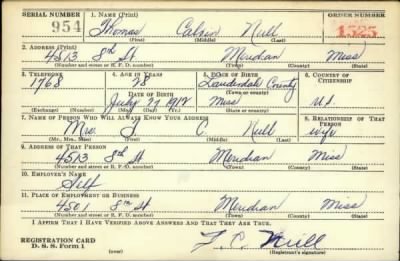 SERIAL NUMBER 1. NAME (Print) ORDER NUMBER
954 Thomas Calvin Null 1525
(First) (Middle) (Last)
2. ADDRESS (Print)
4513 8th St Meridian Miss
(Number and street or R. F. D. number) (Town) (County) (State)
3. TELEPHONE 4. AGE IN YEARS 5. PLACE OF BIRTH 6. COUNTRY OF CITIZENSHIP
1768 28 Lauderdale County
DATE OF BIRTH (Town or county)
July 27 1912 Miss U.S.
(Exchange) (Number) (Mo.) (Day) (Yr.) (State or country)
7. NAME OF PERSON WHO WILL ALWAYS KNOW YOUR ADDRESS 8. RELATIONSHIP OF THAT PERSON
Mrs. T. C. Null wife
(Mr., Mrs., Miss) (First) (Middle) (Last)
9. ADDRESS OF THAT PERSON
4513 8th St Meridian Miss
(Number and street or R. F. D. number) (Town) (County) (State)
10. EMPLOYER'S NAME
Self
11. PLACE OF EMPLOYMENT OR BUSINESS
4501 8th St Meridian Miss
(Number and street or R. F. D. number) (Town) (County) (State)
I AFFIRM THAT I HAVE VERIFIED ABOVE ANSWERS AND THAT THEY ARE TRUE.
REGISTRATION CARD T. C. Null
D. S. S. Form 1 (over) (Registrant's signature)